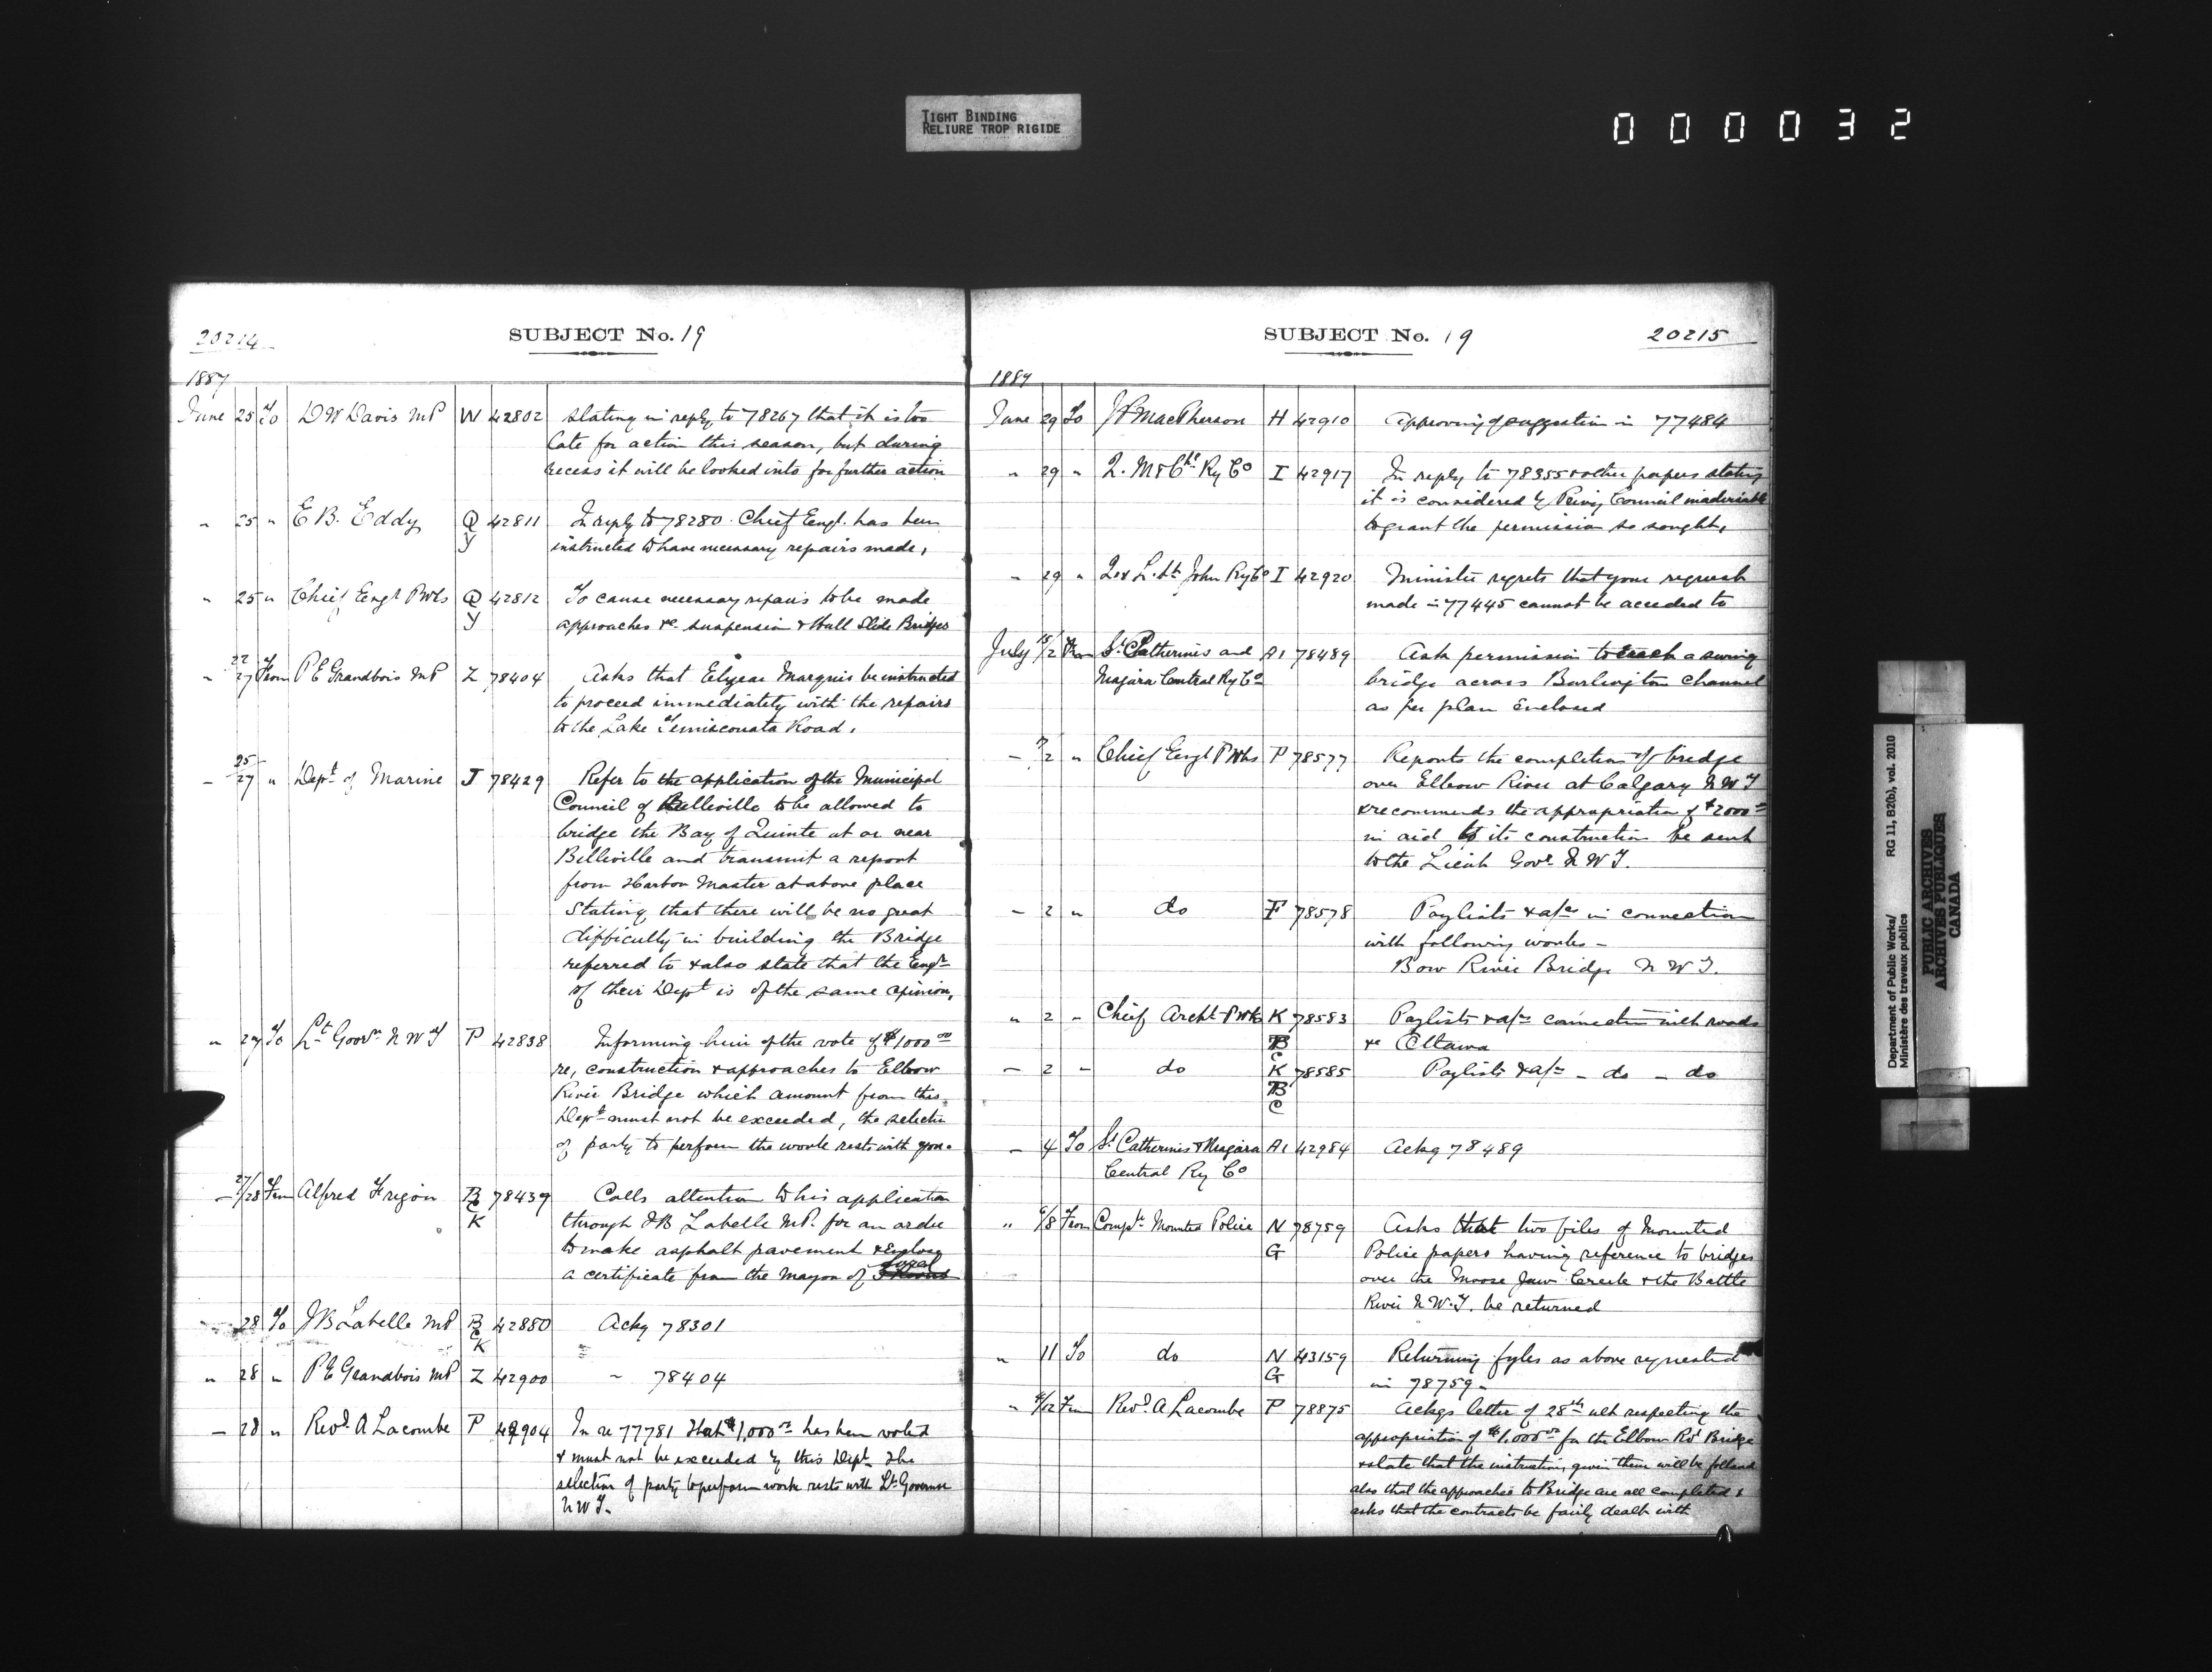 TIGHT BINDING
RELIURE TROP RIGIDE
000032
20214
SUBJECT No. 19
1887
June 25 To D W Davis MP W 42802 stating in reply to 78267 that it is too
late for action this season, but during
recess it will be looked into for further action
" 25 " E B. Eddy Q 42811 In reply to 78280. Chief Engr. has been
y instructed to have necessary repairs made,
" 25 " Chief Engr PWks Q 42812 To cause necessary repairs to be made
y approaches &c suspension & Hull Slide Bridges
" 22/27 From P E Grandbois MP Z 78404 Asks that Elyear Marquis be instructed
to proceed immediately with the repairs
to the Lake Temisconata Road,
- 25/27 " Dept of Marine J 78429 Refer to the application of the Municipal
Council of Belleville to be allowed to
bridge the Bay of Quinte at or near
Belleville and transmit a report
from Harbor Master at above place
Stating that there will be no great
difficulty in building the Bridge
referred to & also state that the Engr
of their Dept is of the same opinion,
" 27 To Lt Govr N W T P 42838 Informing him of the vote of $1,000 00
re, construction & approaches to Elbow
River Bridge which amount from this
Dept must not be exceeded, the selectn
of party to perform the work rests with you.
- 27/28 From Alfred Frigon B 78439 Calls attention to his application
C
K through J B Labelle MP. for an order
to make asphalt pavement & Enclosing
a certificate from the Mayor of Sorel
28 To J B Labelle MP B 42880 Ackg 78301
C
K
" 28 " P E Grandbois MP Z 42900 " 78404
- 28 " Revd. A Lacombe P 42904 In re 77781 that $1,000 00 has been voted
& must not be exceeded by this Dept. The
selection of party to perform work rests with Lt Governor
N W T.
SUBJECT No. 19
20215
1887
June 29 To J P MacPherson H 42910 Approving of suggestion in 77484
" 29 " Q. M & Chs Ry Co I 42917 In reply to 78355 & other papers stating
it is considered by Privy Council inadvisable
to grant the permission so sought,
" 29 " Q & L. St John Ry Co I 42920 Minister regrets that your request
made in 77445 cannot be acceded to
July /2 From St Catherines and A1 78489 Ask permission to erect a swing
Niagara Central Ry Co bridge across Burlington Channel
as per plan Enclosed
- /2 " Chief Engr PWks P 78577 Reports the completion of bridge
over Elbow River at Calgary N W T
& recommends the appropriation of $2000 00
in aid to its construction be sent
to the Lieut Govr N W T.
- 2 " do F 78578 Paylists & a/cs in connection
with following works -
Bow River Bridge N W T.
" 2 - Chief Archt PWks K 78583 Paylists & a/cs connection with roads
B
C &c Ottawa
- 2 - do K 78585 Paylists & a/cs - do - do
B
C
- 4 To St Catherines & Niagara A1 42984 Ackg 78489
Central Ry Co
" 6/8 From Compt. Mounted Police N 78759 Asks that two files of Mounted
G Police papers having reference to bridges
over the Moose Jaw Creek & the Battle
River N.W.T. be returned
" 11 To do N 43159 Returning fyles as above requested
G in 78759-
" /12 From Revd. A Lacombe P 78875 Ackgs letter of 28th ult respecting the
appropriation of $1,000 00 for the Elbow Rvr Bridge
& state that the instruction, given them will be followed
also that the approaches to Bridge are all completed &
asks that the contracts be fairly dealt with
Department of Public Works/
Ministère des travaux publics
RG 11, B2(b), vol. 2010
PUBLIC ARCHIVES
ARCHIVES PUBLIQUES
CANADA